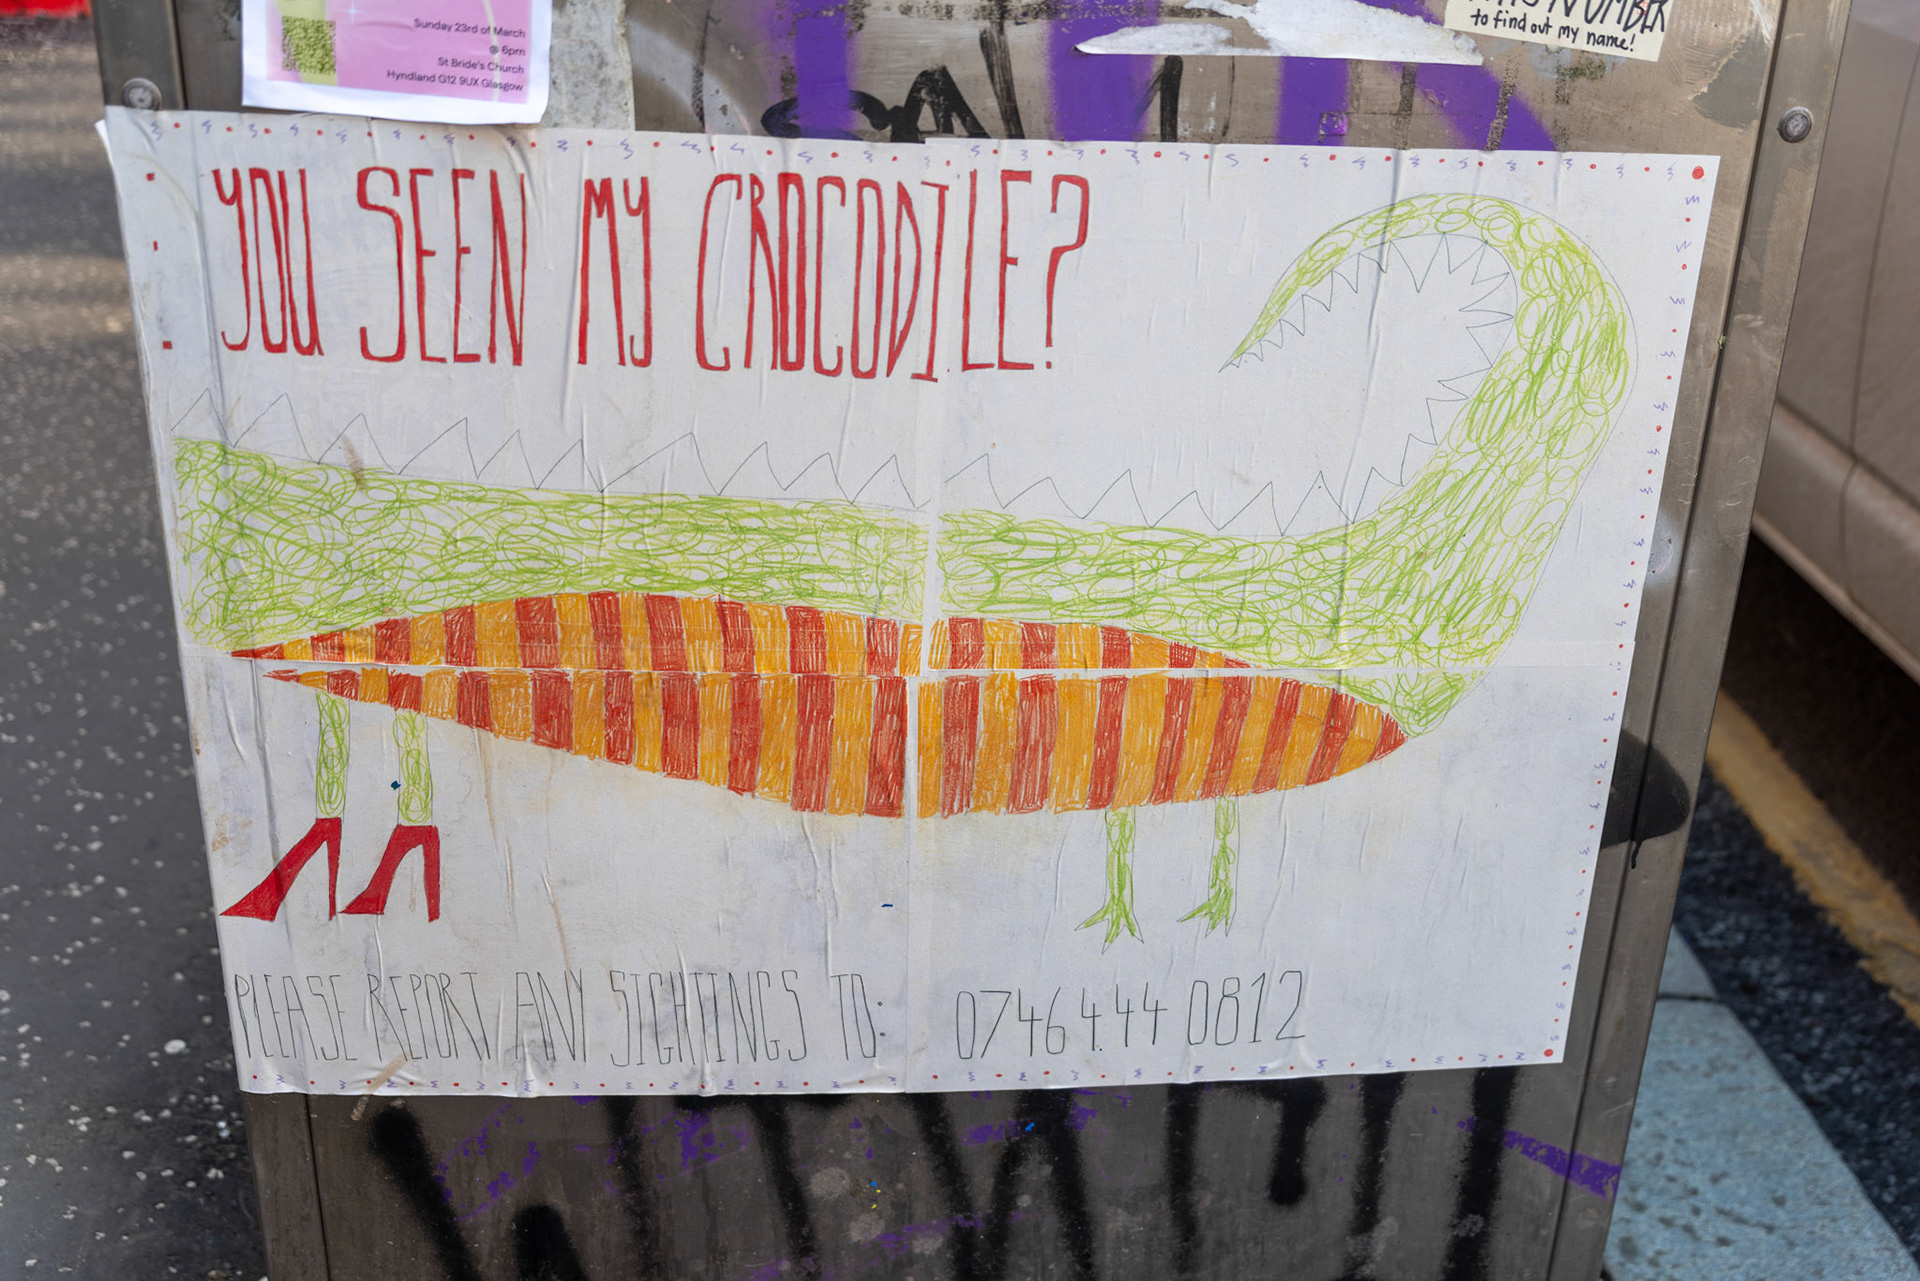 Sunday 23rd of March
@ 6pm
St Bride's Church
Hyndland G12 9UX Glasgow
NUMBER
to find out my name!
YOU SEEN MY CROCODILE?
PLEASE REPORT ANY SIGHTINGS TO: 07464440812